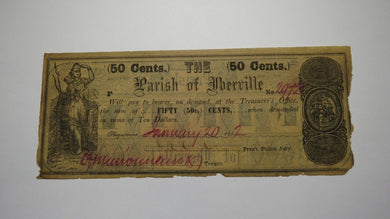 (50 Cents.) THE (50 Cents.)
Parish of Iberville
No.
Will pay to bearer, on demand, at the Treasurer's Office,
the sum of FIFTY (50c.) CENTS, when demanded
in sums of Ten Dollars.
Plaquemine, January 20
Pres't Police Jury.
Treas'r.